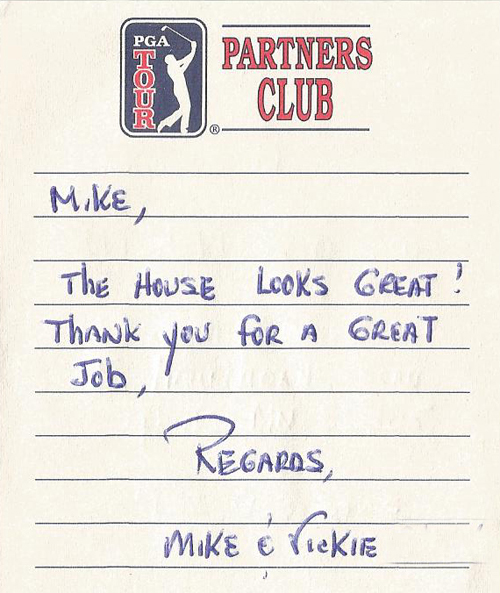 PGA TOUR ®
PARTNERS
CLUB
MIKE,
THE HOUSE LOOKS GREAT!
THANK YOU FOR A GREAT
JOb,
REGARDS,
MIKE & VICKIE